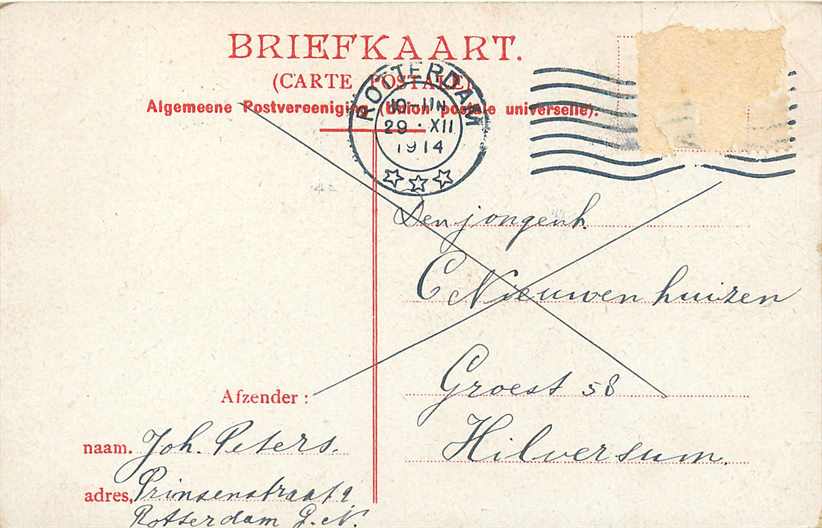 BRIEFKAART.
(CARTE POSTALE)
Algemeene Postvereeniging (Union postale universelle).
ROTTERDAM
10-11N
29 · XII
1914
Den jongenh.
C Nieuwenhuizen
Groest 58
Hilversum.
Afzender :
naam. Joh. Peters.
adres, Prinsenstraat
Rotterdam